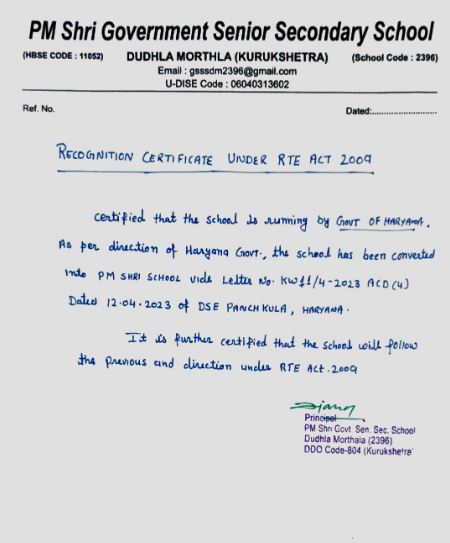 PM Shri Government Senior Secondary School
(HBSE CODE : 11052) DUDHLA MORTHLA (KURUKSHETRA) (School Code : 2396)
Email : gsssdm2396@gmail.com
U-DISE Code : 06040313602
Ref. No. Dated:............................
RECOGNITION CERTIFICATE UNDER RTE ACT 2009
Certified that the school is running by GOVT OF HARYANA.
As per direction of Haryana Govt., the school has been converted
into PM SHRI SCHOOL vide Letter No. KW 11/4-2023 ACD (4)
Dated 12.04.2023 of DSE PANCHKULA, HARYANA.
It is further certified that the school will follow
the previous and direction under RTE Act. 2009
Principal
PM Shri Govt Sen. Sec. School
Dudhla Morthala (2396)
DDO Code-804 (Kurukshetra